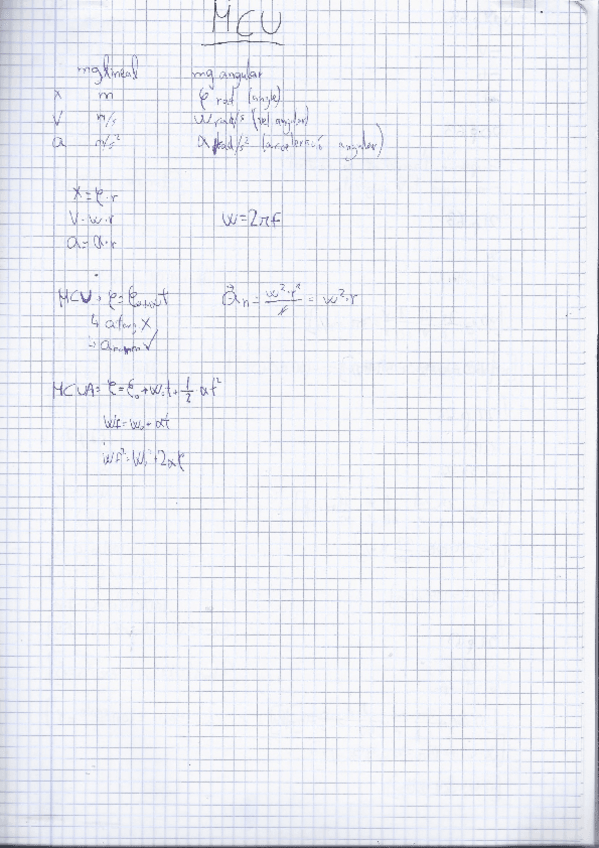 MCU
mg lineal mg angular
x m φ rad (angle)
v m/s ω rad/s (vel angular)
a m/s² α rad/s² (acceleració angular)
x = φ·r
v = ω·r ω = 2πf
a = α·r
MCU φ = φ₀ + ωt a⃗n = ω²·r²/r = ω²·r
↳ atang X
anorm ✓
MCUA: φ = φ₀ + ωᵢt + 1/2 αt²
ωf = ω₀ + αt
ωf² = ωᵢ² + 2αφ